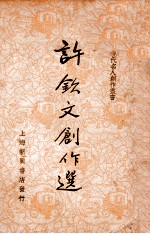 現代名人創作叢書
許欽文創作選
上海新象書店發行